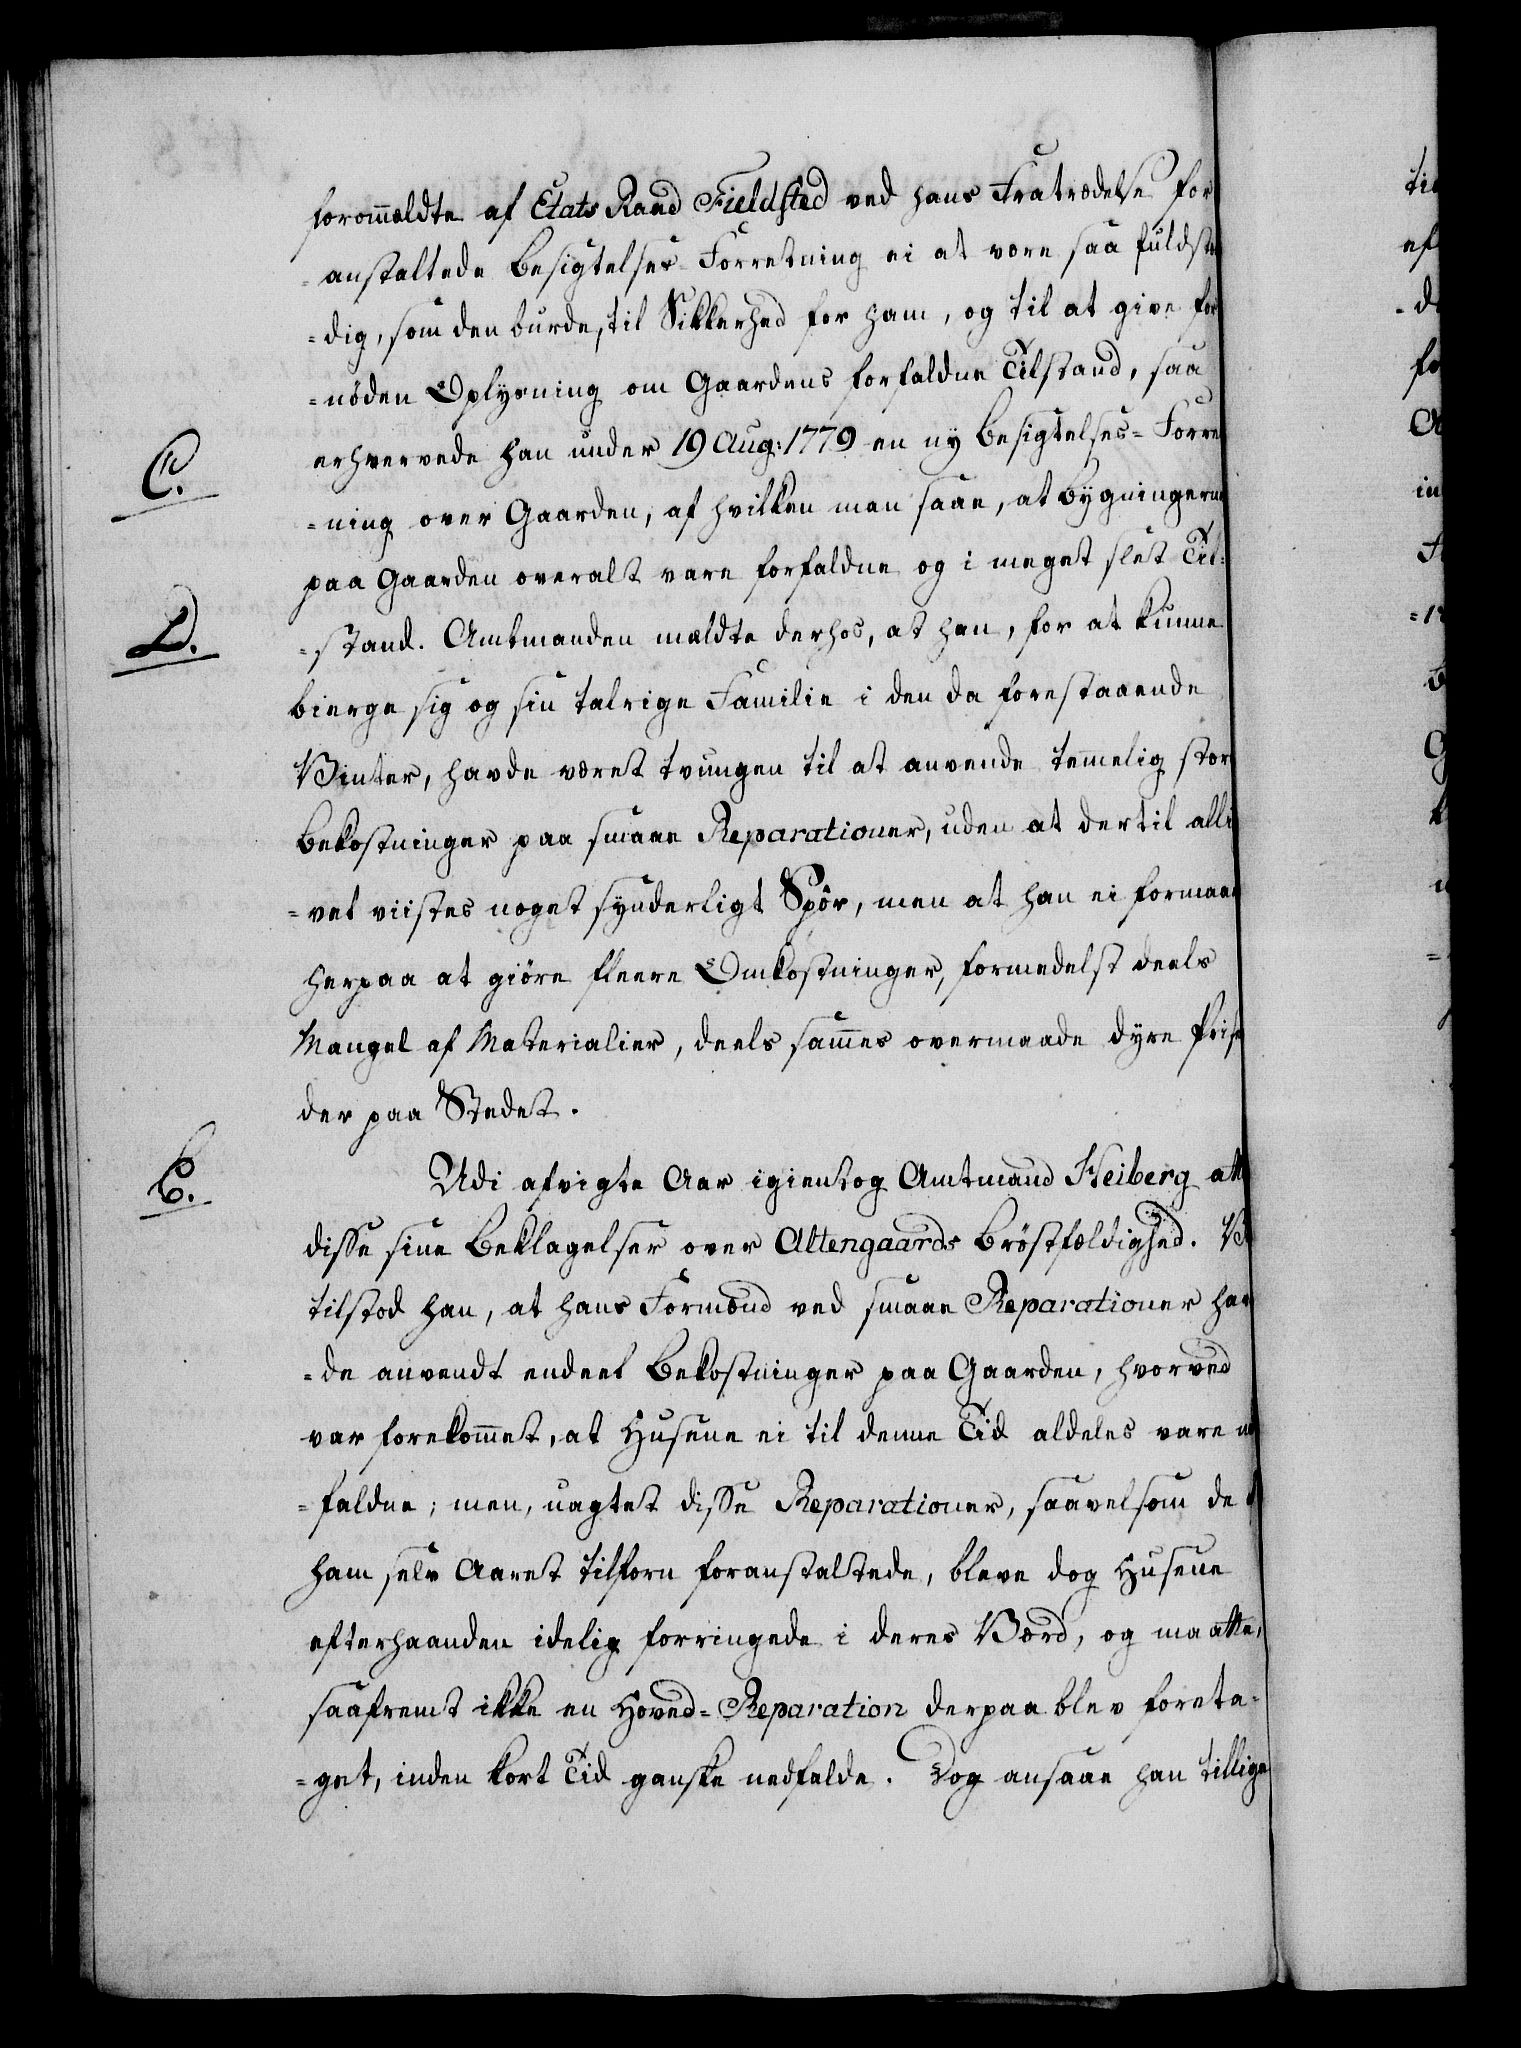 forommeldte af Etats Raad Fieldsted ved hans Fratrædelse for
=anstaltede Besigtelses-Forretning ei at være saa fuldstæn
=dig, som den burde, til Sikkerhed for ham, og til at give for
=nöden Oplysning om Gaardens forfaldne Tilstand, saa
C.
erhvervede han under 19 Aug: 1779 en ny Besigtelses=Forret
=ning over Gaarden, af hvilken man saae, at bygningerne
paa Gaarden overalt vare forfaldne og i meget slet Til=
D.
=stand. Amtmanden meldte derhos, at han, for at kunne
bierge sig og sin talrige Familie i den da forestaaende
Vinter, havde været tvungen til at anvende temmelig store
bekostninger paa smaae Reparationer, uden at dertil alli
=vel viistes noget synderligt Spör, men at han ei formaaede
herpaa at giöre fleere Omkostninger, formedelst deels
Mangel af Materialier, deels sammes overmaade dyre Priser
der paa Stedet.
E.
Udi afvigte Aar igientog Amtmand Heiberg alle
disse sine Beklagelser over Altengaards Bröstfældighed. Vel
tilstod han, at hans Formænd ved smaae Reparationer hav
=de anvendt endeel Bekostninger paa Gaarden, hvorved
var forekommet, at Husene ei til denne Tid aldeles vare ned
=faldne; men, uagtet disse Reparationer, saavelsom de af
ham selv Aaret tilforn foranstaltede, bleve dog Husene
efterhaanden idelig forringede i deres Værd, og maatte,
saafremt ikke en Hoved=Reparation derpaa blev foreta=
=get, inden kort Tid ganske nedfalde. Dog ansaae han tillige